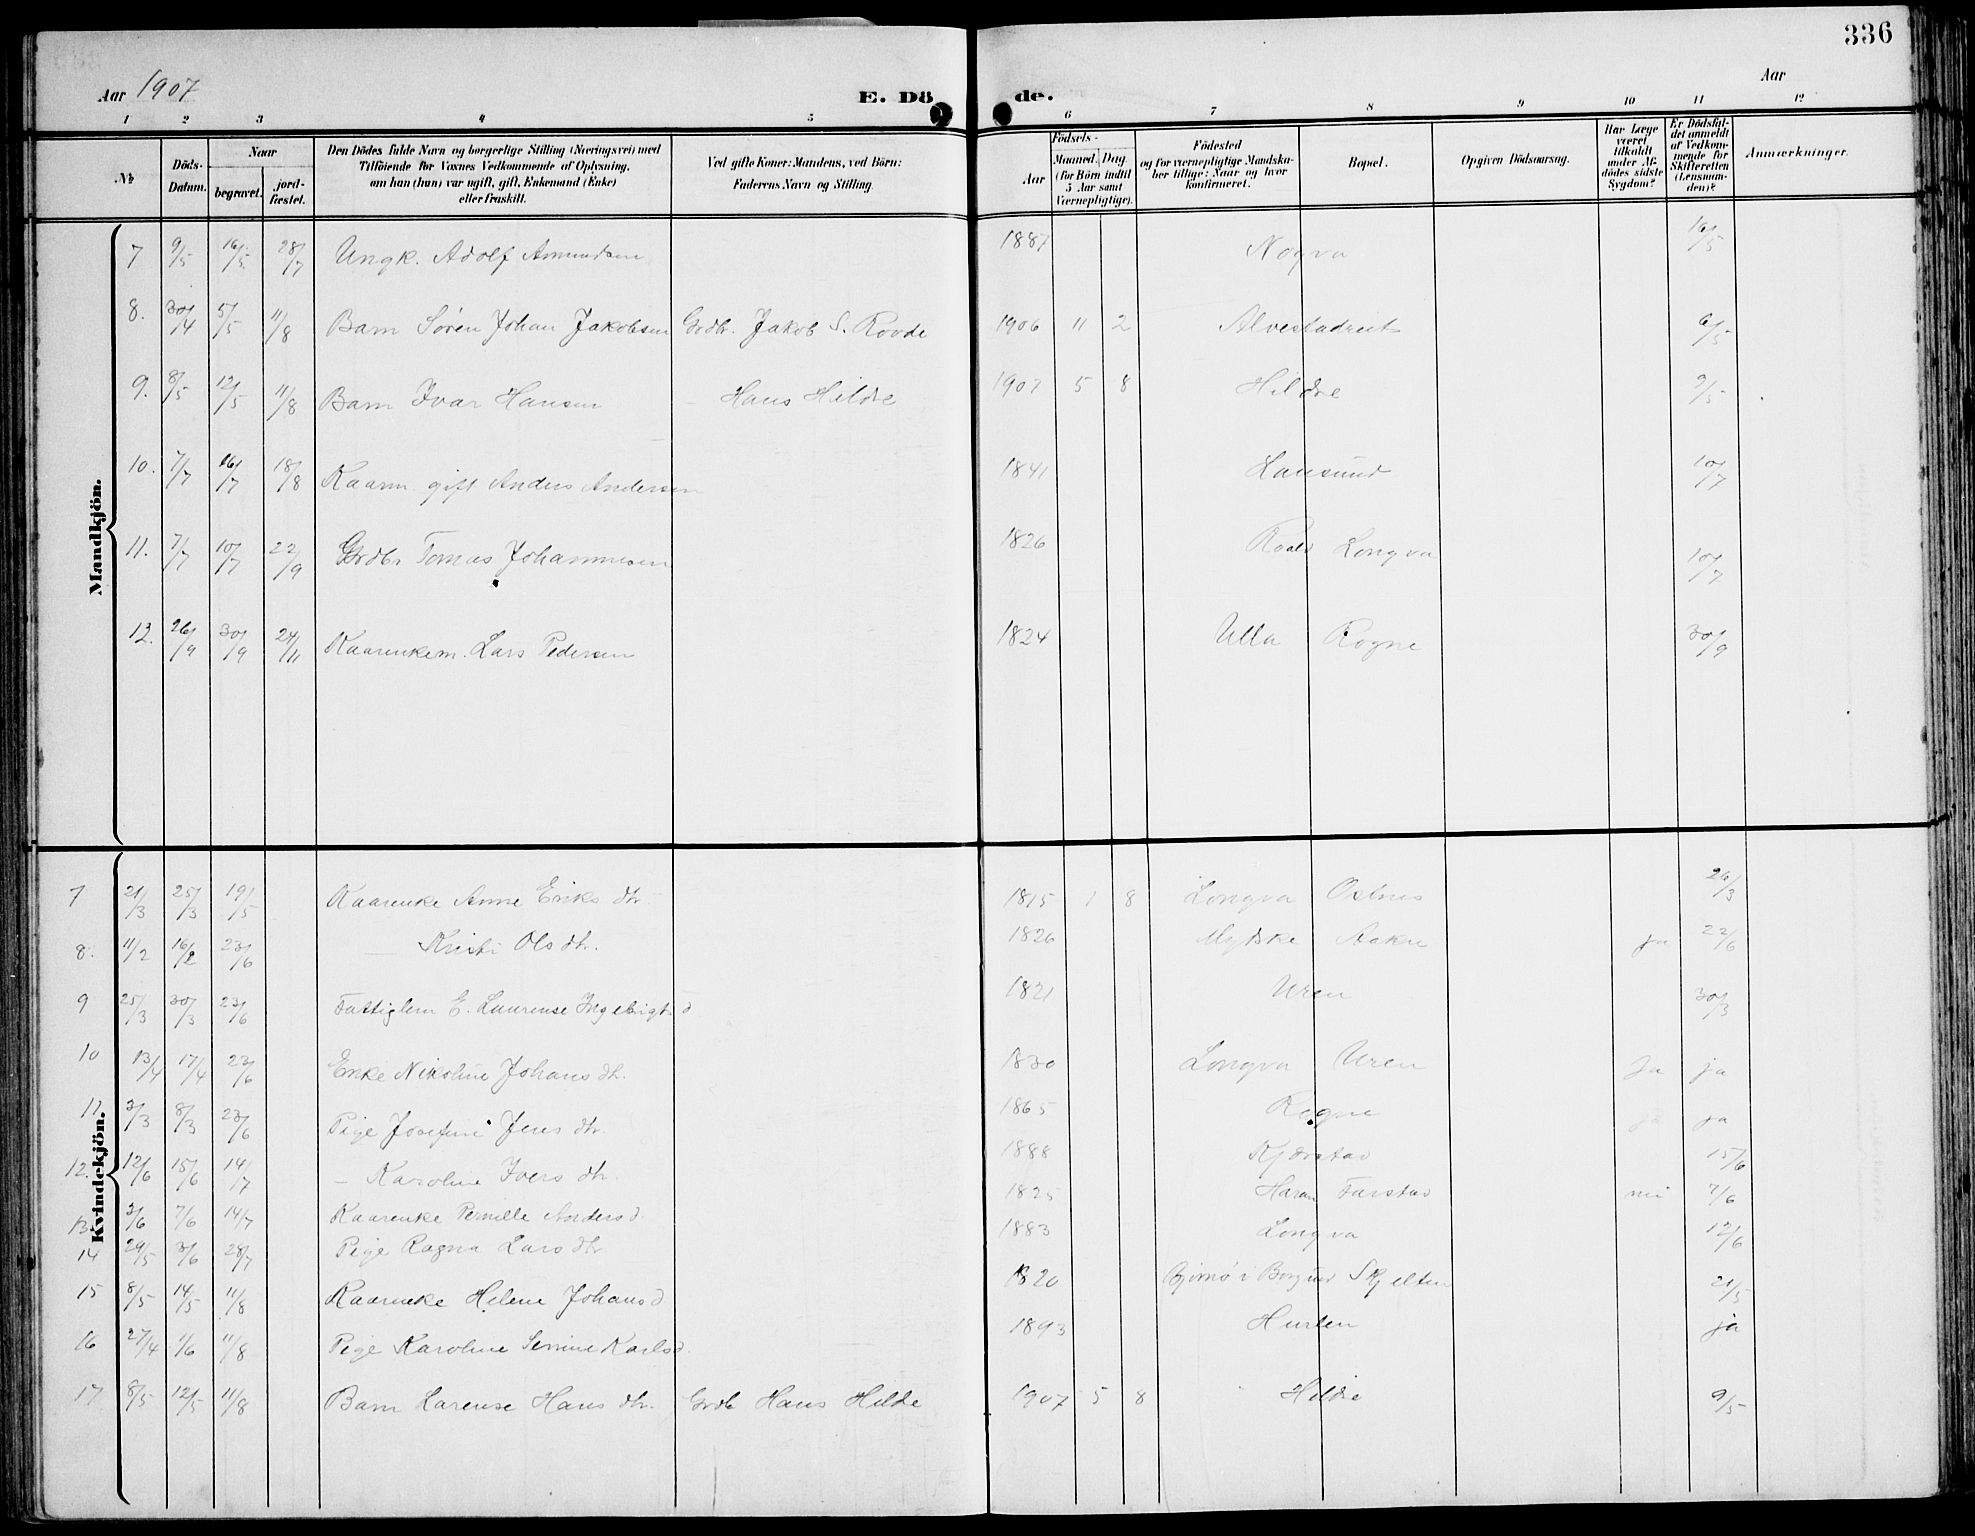 336
Aar 1907
E. Dö
de.
Aar
1 2 3 4 5 6 7 8 9 10 11 12
№
Döds-
Datum.
Naar
begravet.
jord-
fæstet.
Den Dödes fulde Navn og borgerlige Stilling (Næringsvei) med
Tilföiende for Voxnes Vedkommende af Oplysning,
om han (hun) var ugift, gift, Enkemand (Enke)
eller fraskilt.
Ved gifte Koner: Mandens, ved Börn:
Faderens Navn og Stilling.
Födsels-
Aar
Maaned. Dag.
(for Börn indtil
5 Aar samt
Værnepligtige).
Födested
og for værnepligtige Mandska-
ber tillige: Naar og hvor
konfirmeret.
Bopæl.
Opgiven Dödsaarsag.
Har Læge
været
tilkaldt
under Af-
dödes sidste
Sygdom?
Er Dödsfal-
det anmeldt
af Vedkom-
mende for
Skifteretten
(Lensman-
den)?
Anmærkninger.
Mandkjön.
7 9/5 16/5 28/7 Ungk. Adolf Amundsen 1887 Nogva 16/5
8. 30/4 5/5 11/8 Barn Søren Johan Jakobsen Grdb. Jakob S. Rovde 1906 11 2 Alvestadreit 6/5
9. 8/5 12/5 11/8 Barn Ivar Hansen — Hans Hildre 1907 5 8 Hildre 9/5
10. 7/7 16/7 18/8 Kaarm. gift Anders Andersen 1841 Hausund 10/7
11. 7/7 10/7 22/9 Grdbr Tomas Johannesen 1826 Roald Longva 10/7
12. 26/9 30/9 24/11 Kaarenkem. Lars Pedersen 1824 Ulla Rogne 30/9
Kvindekjön.
7 21/3 25/3 19/5 Kaarenke Anne Eriks dtr. 1815 1 8 Longva Oxtnes 24/3
8. 11/2 16/2 23/6 — Kristi Ols dtr. 1826 Myfske Aakre ja 22/6
9 25/3 30/3 23/6 Fattiglem E. Laurense Ingebrigts d 1821 Uren 30/3
10 13/4 17/4 23/6 Enke Nikoline Johans dtr. 1830 Longva Uren ja ja
11 3/3 8/3 23/6 Pige Josefine Jens dtr. 1865 Rogne ja ja
12. 12/6 15/6 14/7 — Karoline Ivers dtr. 1888 Kjærstad 15/6
13 2/6 7/6 14/7 Kaarenke Pernille Anders d. 1825 Haram Farstad nei 7/6
14 29/5 3/6 28/7 Pige Ragna Lars dtr. 1883 Longva 12/6
15 8/5 14/5 11/8 Kaarenke Helene Johans d 1820 Bjørnø i Borgund Skjelten 21/5
16 27/4 1/6 11/8 Pige Karoline Senine Karlsd. 1893 Hurlen ja
17 8/5 12/5 11/8 Barn Larense Hans dtr. Grdb Hans Hildre 1907 5 8 Hildre 9/5